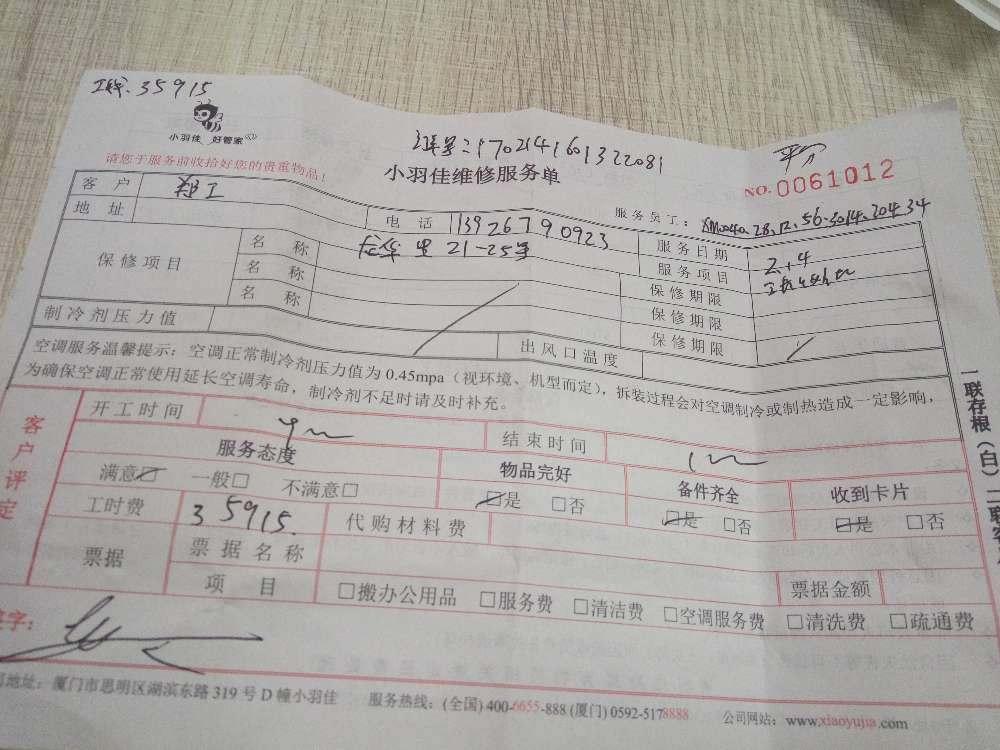 35915
小羽佳 好管家
1702141601322081
请您于服务前收拾好您的贵重物品！
小羽佳维修服务单
NO.0061012
客户 郑工
服务员工：
地址
电话 13926790923
服务日期 2.14
保修项目
名称 21-25号
服务项目
名称
保修期限
名称
保修期限
制冷剂压力值
出风口温度
保修期限
空调服务温馨提示：空调正常制冷剂压力值为 0.45mpa（视环境、机型而定），拆装过程会对空调制冷或制热造成一定影响，
为确保空调正常使用延长空调寿命，制冷剂不足时请及时补充。
一联存根（白）二联
客户评定
开工时间
结束时间
服务态度
物品完好
备件齐全
收到卡片
满意☑ 一般□ 不满意□
☑是 □否
☑是 □否
☑是 □否
工时费 35915
代购材料费
票据
票据名称
票据金额
项目
□搬办公用品 □服务费 □清洁费 □空调服务费 □清洗费 □疏通费
字：
地址：厦门市思明区湖滨东路 319 号 D 幢小羽佳 服务热线：(全国) 400-6655-888 (厦门) 0592-5178888 公司网站：www.xiaoyujia.com